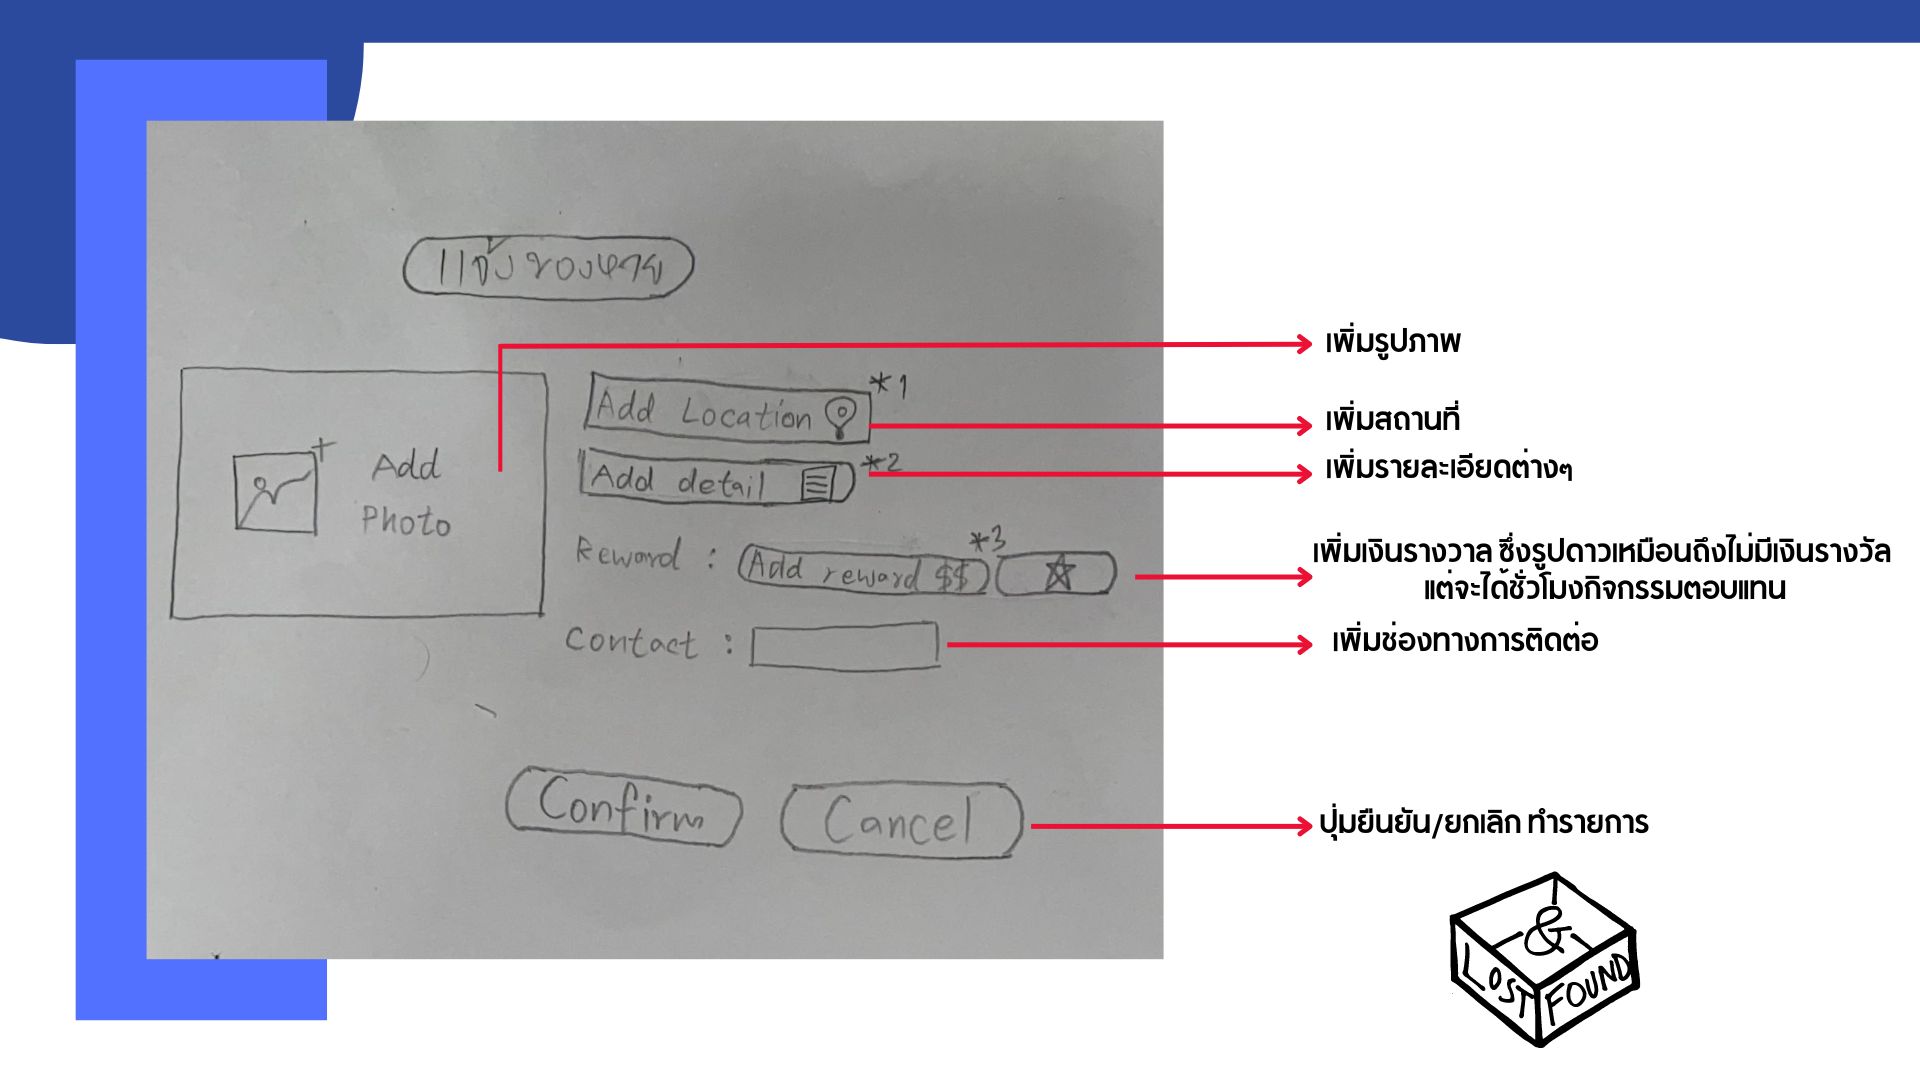 แจ้งของหาย
Add
Photo
Add Location
*1
Add detail
*2
Reward : Add reward $$
*3
Contact :
Confirm
Cancel
เพิ่มรูปภาพ
เพิ่มสถานที่
เพิ่มรายละเอียดต่างๆ
เพิ่มเงินรางวาล ซึ่งรูปดาวเหมือนถึงไม่มีเงินรางวัล
แต่จะได้ชั่วโมงกิจกรรมตอบแทน
เพิ่มช่องทางการติดต่อ
ปุ่มยืนยัน/ยกเลิก ทำรายการ
&
LOST
FOUND